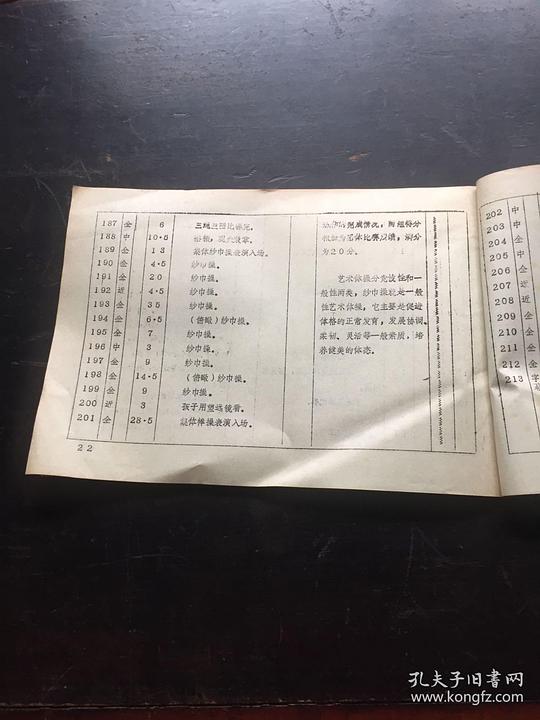 187 全 6 三地
188 中 10·5
189 全 13 集体纱巾操表演入场。
190 全 4·5 纱巾操。
191 全 20 纱巾操。
192 近 4·5 纱巾操。
193 全 35 纱巾操。
194 全 6·5 (俯瞰)纱巾操。
195 全 7 纱巾操。
196 中 3 纱巾操。
197 全 9 纱巾操。
198 全 14·5 (俯瞰)纱巾操。
199 全 9 纱巾操。
200 近 3 孩子用望远镜看。
201 全 28·5 集体棒操表演入场。
成情况,两组得分
为团体比赛成绩,满分
为20分。
艺术体操分竞技性和一
般性两类,纱巾操就是一般
性艺术体操,它主要是促进
体格的正常发育,发展协调、
柔韧、灵活等一般素质,培
养健美的体态。
22
202 中
203 全
204 中
205 全
206 近
207 近
208 全
209 全
210 全
211 全
212 全
213 字
孔夫子旧书网
www.kongfz.com